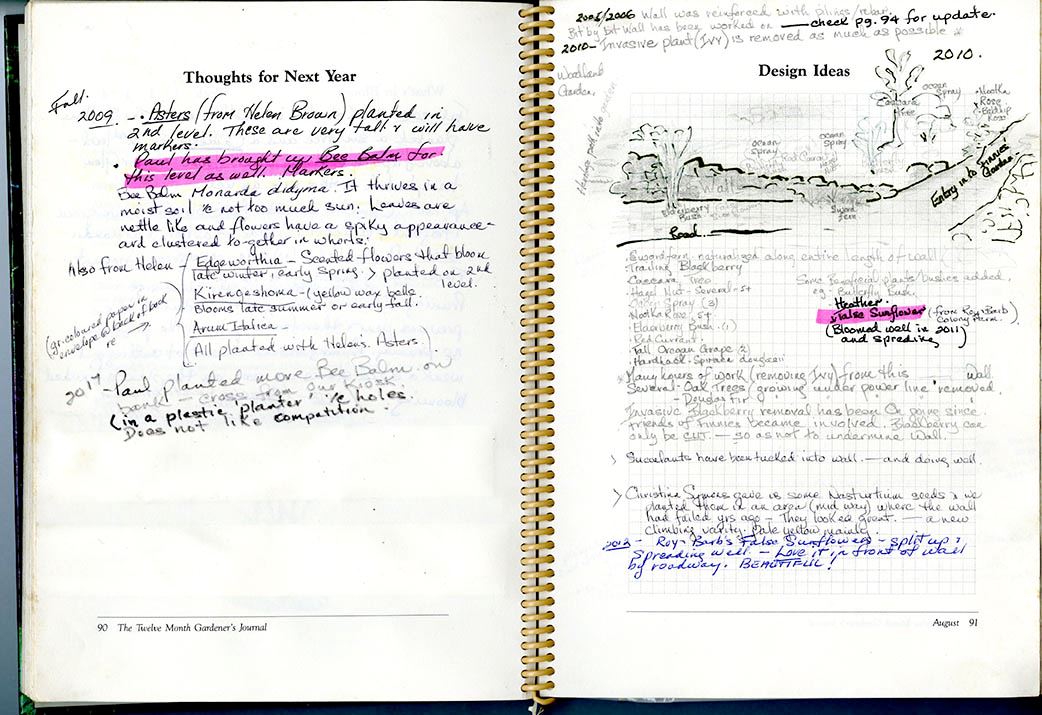 Thoughts for Next Year
Fall.
2009. - . Asters (from Helen Brown) planted in
2nd level. These are very tall & will have
markers.
. Paul has brought up Bee Balm for
this level as well. Markers.
Bee Balm Monarda didyma. It thrives in a
moist soil not too much sun. Leaves are
nettle like and flowers have a spiky appearance
and clustered to-gether in whorls.
Also from Helen - Edgeworthia - Scented flowers that bloom
late winter, early Spring. > planted on 2nd
level.
Kirengeshoma - (yellow wax bells
Blooms late summer or early fall.
Arum Italica -
(All planted with Helens. Asters.)
(gr. coloured paper in
envelope @ back of book
re
2017 - Paul planted more Bee Balm on
bank - cross from our Kiosk.
(in a plastic planter holes.
Does not like compitition.
90 The Twelve Month Gardener's Journal
2005/2006 Wall was reinforced with pilings/rebar.
Bit by bit Wall has been worked on - check pg. 94 for update.
2010 - Invasive plant (Ivy) is removed as much as possible *
2010.
Woodland
Garden.
Design Ideas
Cascara
tree
Ocean
Spray
Nootka
Rose
Baldhip
Rose
Ocean
Spray
Ocean
Spray
Red Currant
Wall
Elderberry
Bush
Sword
fern
Entry into Finnies
Garden.
Road.
. Sword fern - naturalized along entire length of wall
. Trailing Blackberry
. Cascara Tree
Some Beneficial plants/bushes added.
. Hazel Nut - Several - 5+
eg - Butterfly Bush.
. Ocean Spray (3)
Heather.
. Nootka Rose. 5+
False Sunflower (from Roy & Barb
Colony Farm.)
. Elderberry Bush. (1)
(Bloomed well in 2011)
and spreding)
. Red Currant.
. Tall Oregon Grape (2)
. Hardhack Spiraea douglasii
* Many hours of work (removing Ivy) from this Wall
Several Oak Trees (growing under power line) removed
- Douglas Fir
Invasive Blackberry removal has been On going since
friends of Finnies became involved. Blackberry can
only be CUT - so as not to undermine Wall.
> Succulants have been tucked into wall. - and doing well.
> Christina Symons gave us some Nasturtium seeds & we
planted them in an area (mid way) where the wall
had failed yrs ago - They looked great. - a new
climbing varity. Pale yellow mainly
2012 - Roy & Barb's False Sunflowers - split up &
Spreading well. - Love it in front of wall
by roadway. BEAUTIFUL!
August 91